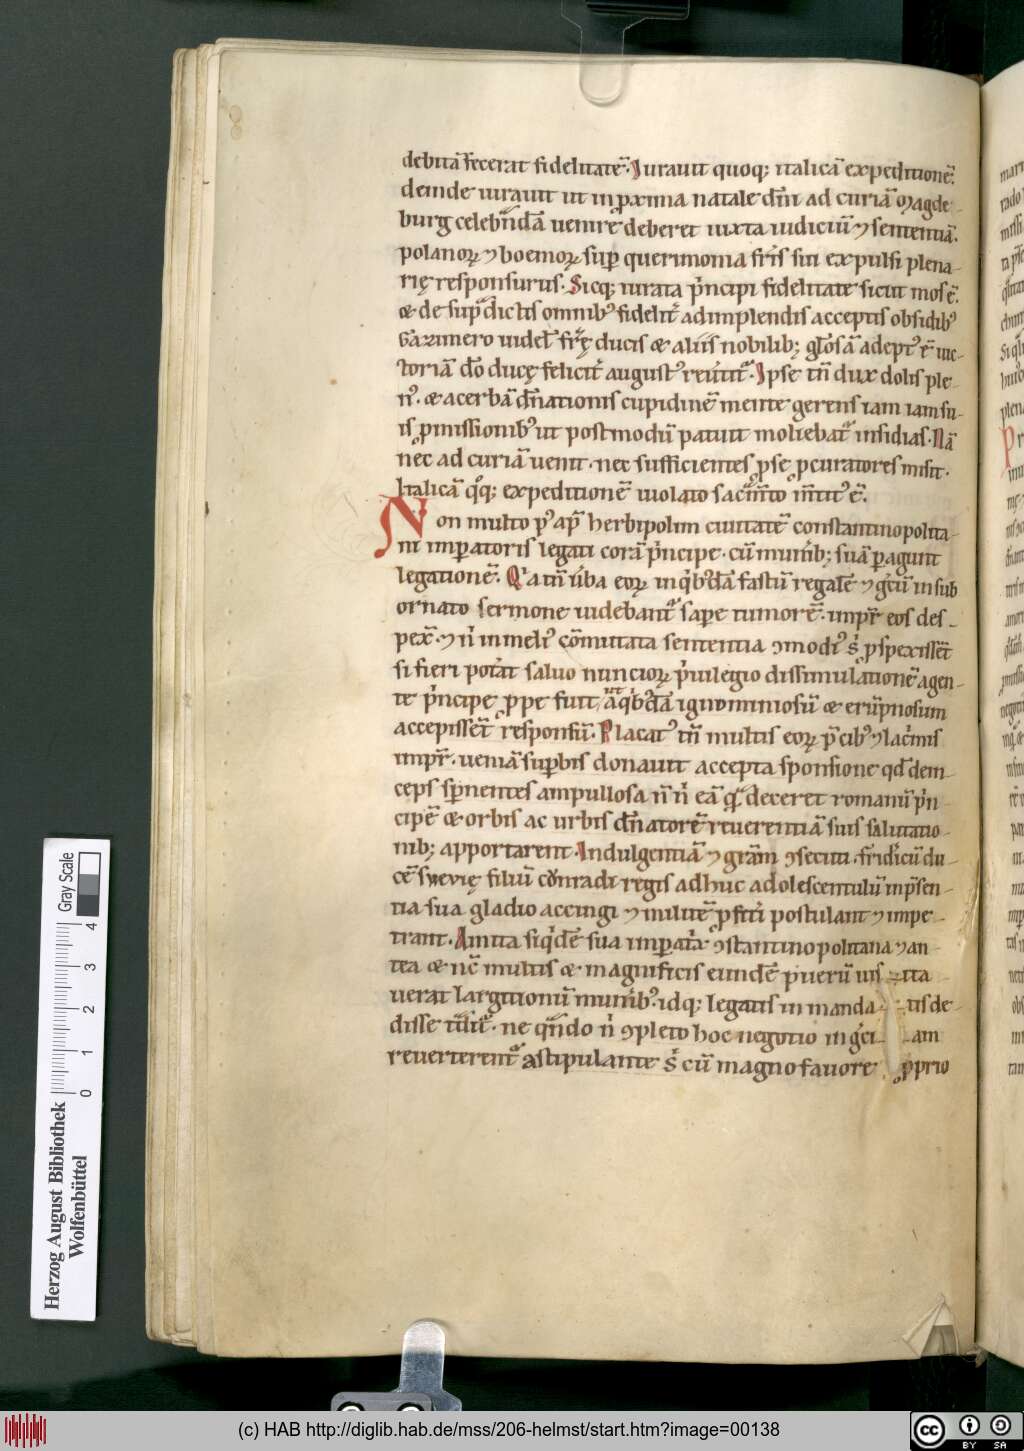 debitā fecerat fidelitatē. Iurauit quoq; italicā expeditionē.
deinde iurauit ut in ꝓxima natale dn̄i ad curiā Magde-
burg celebn̄dā uenire deberet iuxta iudiciū ⁊ sententiā.
polanoꝝ ⁊ boemoꝝ suꝑ querimonia fr̄is sui expulsi plena-
rię responsurus. Sicq; iurata pͥncipi fidelitate sicut mos ē.
& de sup̄dictis omnibꝰ fidelit̄ adimplendis acceptis obsidibꝰ
Gazimero uidel' fr̄ę ducis & aliis nobilib; gl̄osā adeptꝰ ē uic-
toriā dō ducę felicit̄ augustꝰ reūtit̄. Ipse tn̄ dux dolis ple-
nꝰ. & acerbā dn̄ationis cupidinē mente gerens iam iam su-
is ꝓmissionibꝰ ut postmodū patuit moliebat̄ insidias. Nā
nec ad curiā uenit. nec sufficientes ꝓ se ꝓcuratores misit.
Italicā qͦq; expeditionē uiolato sacm̄to m̄titꝰ ē.
Non multo pꝰ ap̄ herbipolim ciuitatē constantinopolita-
ni imꝑatoris legati corā pͥncipe. cū munīb; suā ꝑagunt
legationē. Qͥa tn̄ ūba eoꝝ in qͥbꝰdā fastū regalē ⁊ gͤcū in sub
ornato sermone uidebant̄ saꝑe tumorē. imꝑr̄ eos des-
pex̄. ⁊ nͥ in melꝰ cōmutata sententia ꝯmodꝰ s̄ ꝓspexissēt
si fieri potͣat saluo nuncioꝝ pͥuilegio dissimulationē agen-
te pͥncipe ꝓpe fuit, ut a qͥbꝰdā ignominiosū & erūpnosum
accepissēt responsū. Placatꝰ tn̄ multis eoꝝ p̄cibꝰ ⁊ lacͥmis
imꝑr̄. ueniā suꝑbis donauit accepta sponsione qd̄ dein-
ceps sꝑnentes ampullosa n̄ nͥ eā q̄ deceret romanū pͥn-
cipē & orbis ac urbis dn̄atorē reuerentiā suis salutatio-
nib; apportarent. Indulgentiā ⁊ grām ꝯsecuti. fridͥcū du-
cē sueuię filiū cōnradi regis adhuc adolescentulū inp̄sen-
tia sua gladio accingi ⁊ militē ꝓfit̄i postulant ⁊ impe-
trant. Amita siqͥdē sua imꝑatͣx ꝯstantinopolitana ⁊ an-
tea & nc̄ multis & magnificis eundē puerū uisita
uerat largitionū munībꝰ. idq; legatis in mandatis de-
disse tdit̄. ne qn̄do nͥ ꝯpleto hoc negotio in gͤciam
reuerterent̄ astipulante s̄ cū magno fauore ꝓprio
Herzog August Bibliothek
Wolfenbüttel
Gray Scale
0 1 2 3 4
(c) HAB http://diglib.hab.de/mss/206-helmst/start.htm?image=00138
cc BY SA